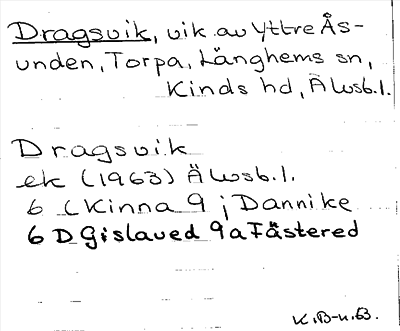 Dragsvik, vik av Yttre Ås-
unden, Torpa, Länghems sn,
Kinds hd, Älvsb. l.
Dragsvik
ek (1963) Älvsb. l.
6 C Kinna 9 j Dannike
6 D Gislaved 9 a Fästered
K.B-u.B.